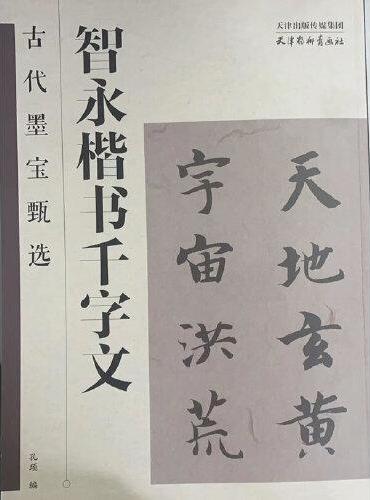 天津出版传媒集团
天津杨柳青画社
智永楷书千字文
古代墨宝甄选
天地玄黄
宇宙洪荒
孔瑶 编